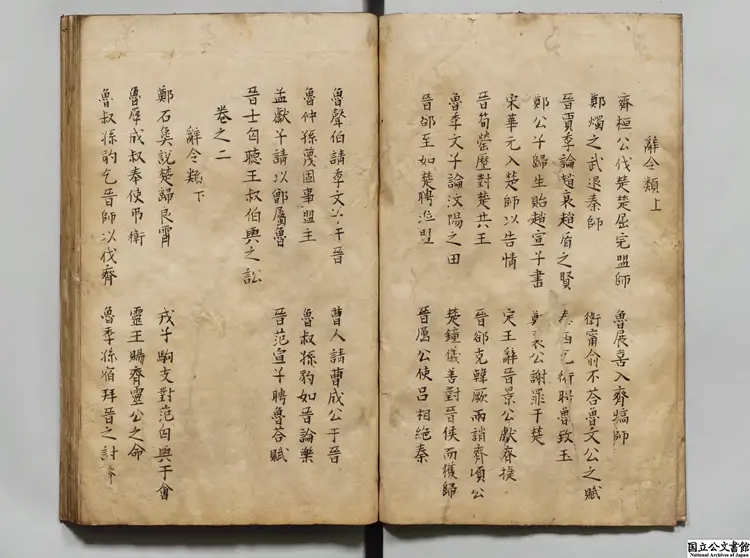 辭令類上
齊桓公伐楚楚屈完盟師
魯展喜入齊犒師
鄭燭之武退秦師
衛甯俞不荅魯文公之賦
晉賈季論趙衰趙盾之賢
秦西乞術聘魯致玉
鄭公子歸生貽趙宣子書
鄭襄公謝罪于楚
宋華元入楚師以告情
定王辭晉景公獻齊捷
晉荀罃歷對楚共王
晉郤克韓厥兩誚齊頃公
魯季文子論汶陽之田
楚鍾儀善對晉侯而獲歸
晉郤至如楚聘涖盟
晉厲公使呂相絕秦
魯聲伯請季文子于晉
曹人請曹成公于晉
魯仲孫蔑固事盟主
魯叔孫豹如晉論樂
孟獻子請以鄫屬魯
晉范宣子聘魯荅賦
晉士匄聽王叔伯輿之訟
卷之二
辭令類下
鄭石㚟說楚歸良霄
戎子駒支對范匄與于會
魯厚成叔奉使弔衛
靈王賜齊靈公之命
魯叔孫豹乞晉師以伐齊
魯季孫宿拜晉之討齊
国立公文書館
National Archives of Japan